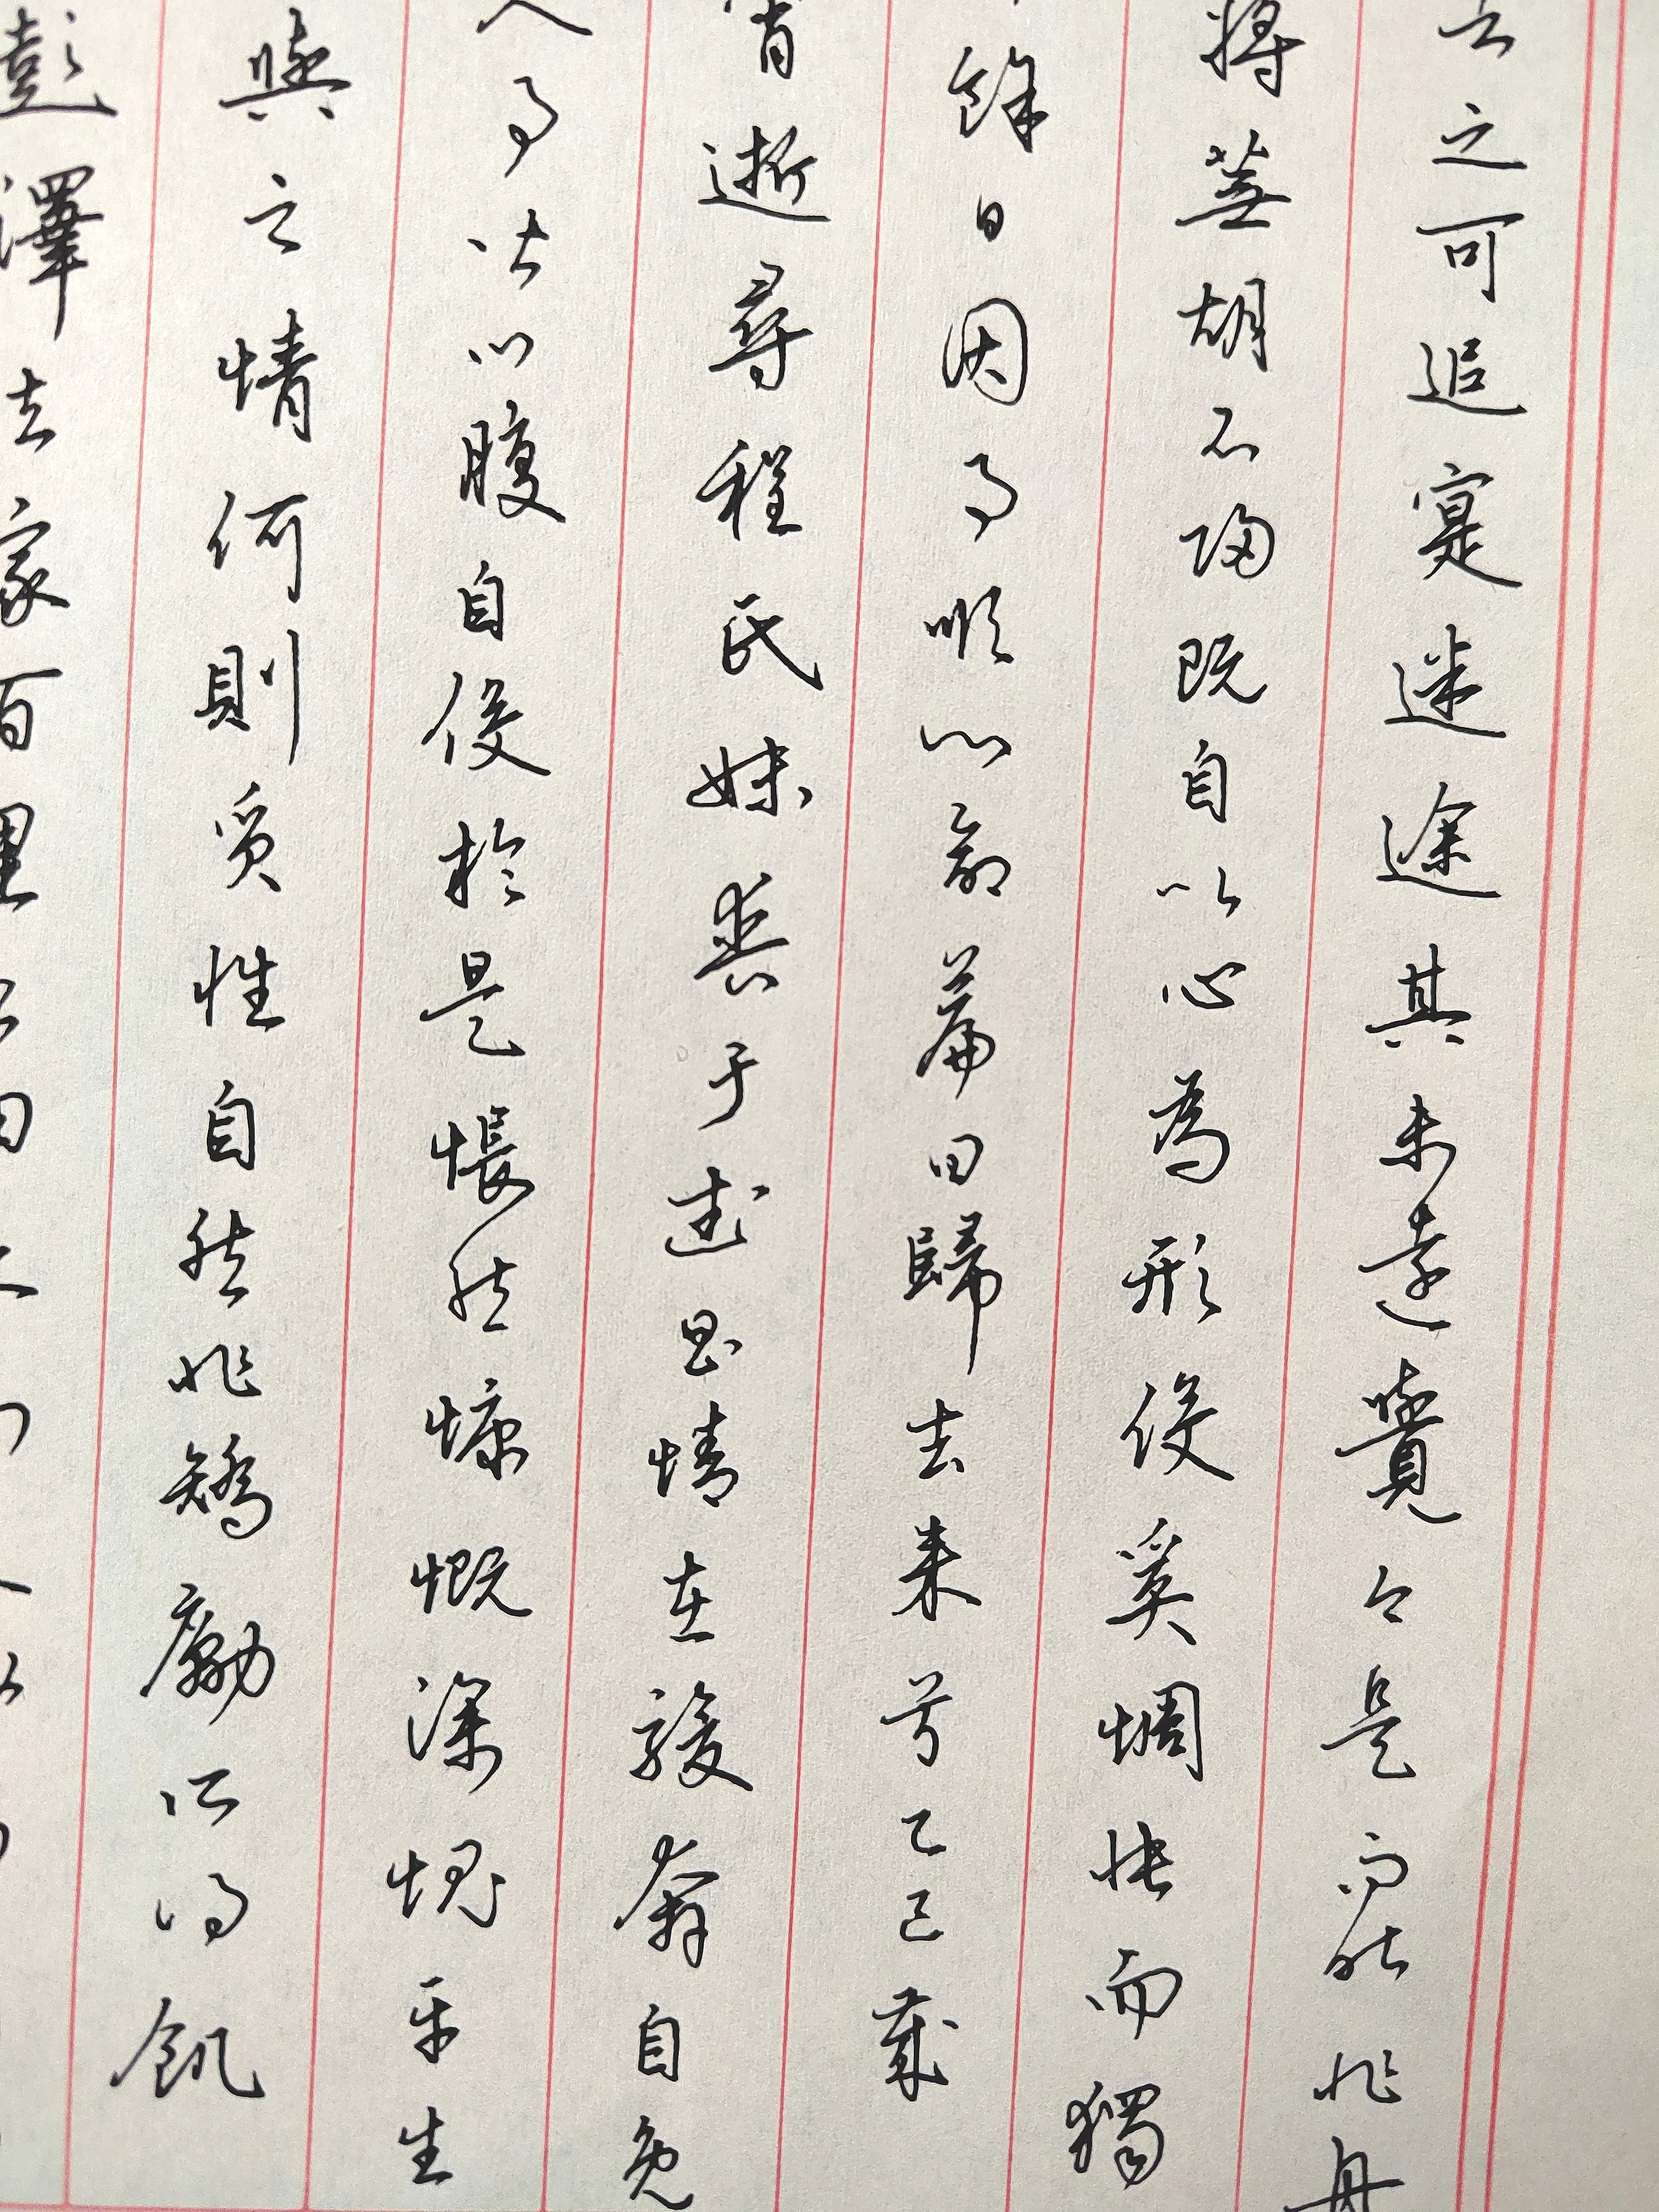 者之可追寔迷途其未遠覺今是而昨非舟
將蕪胡不歸既自以心為形役奚惆悵而獨
餘日因事順心命篇曰歸去來兮乙巳歲
宵逝尋程氏妹喪于武昌情在駿奔自免
人事皆口腹自役於是悵然慷慨深愧平生
與之情何則質性自然非矯勵所得飢
彭澤去家百里公田之利足以